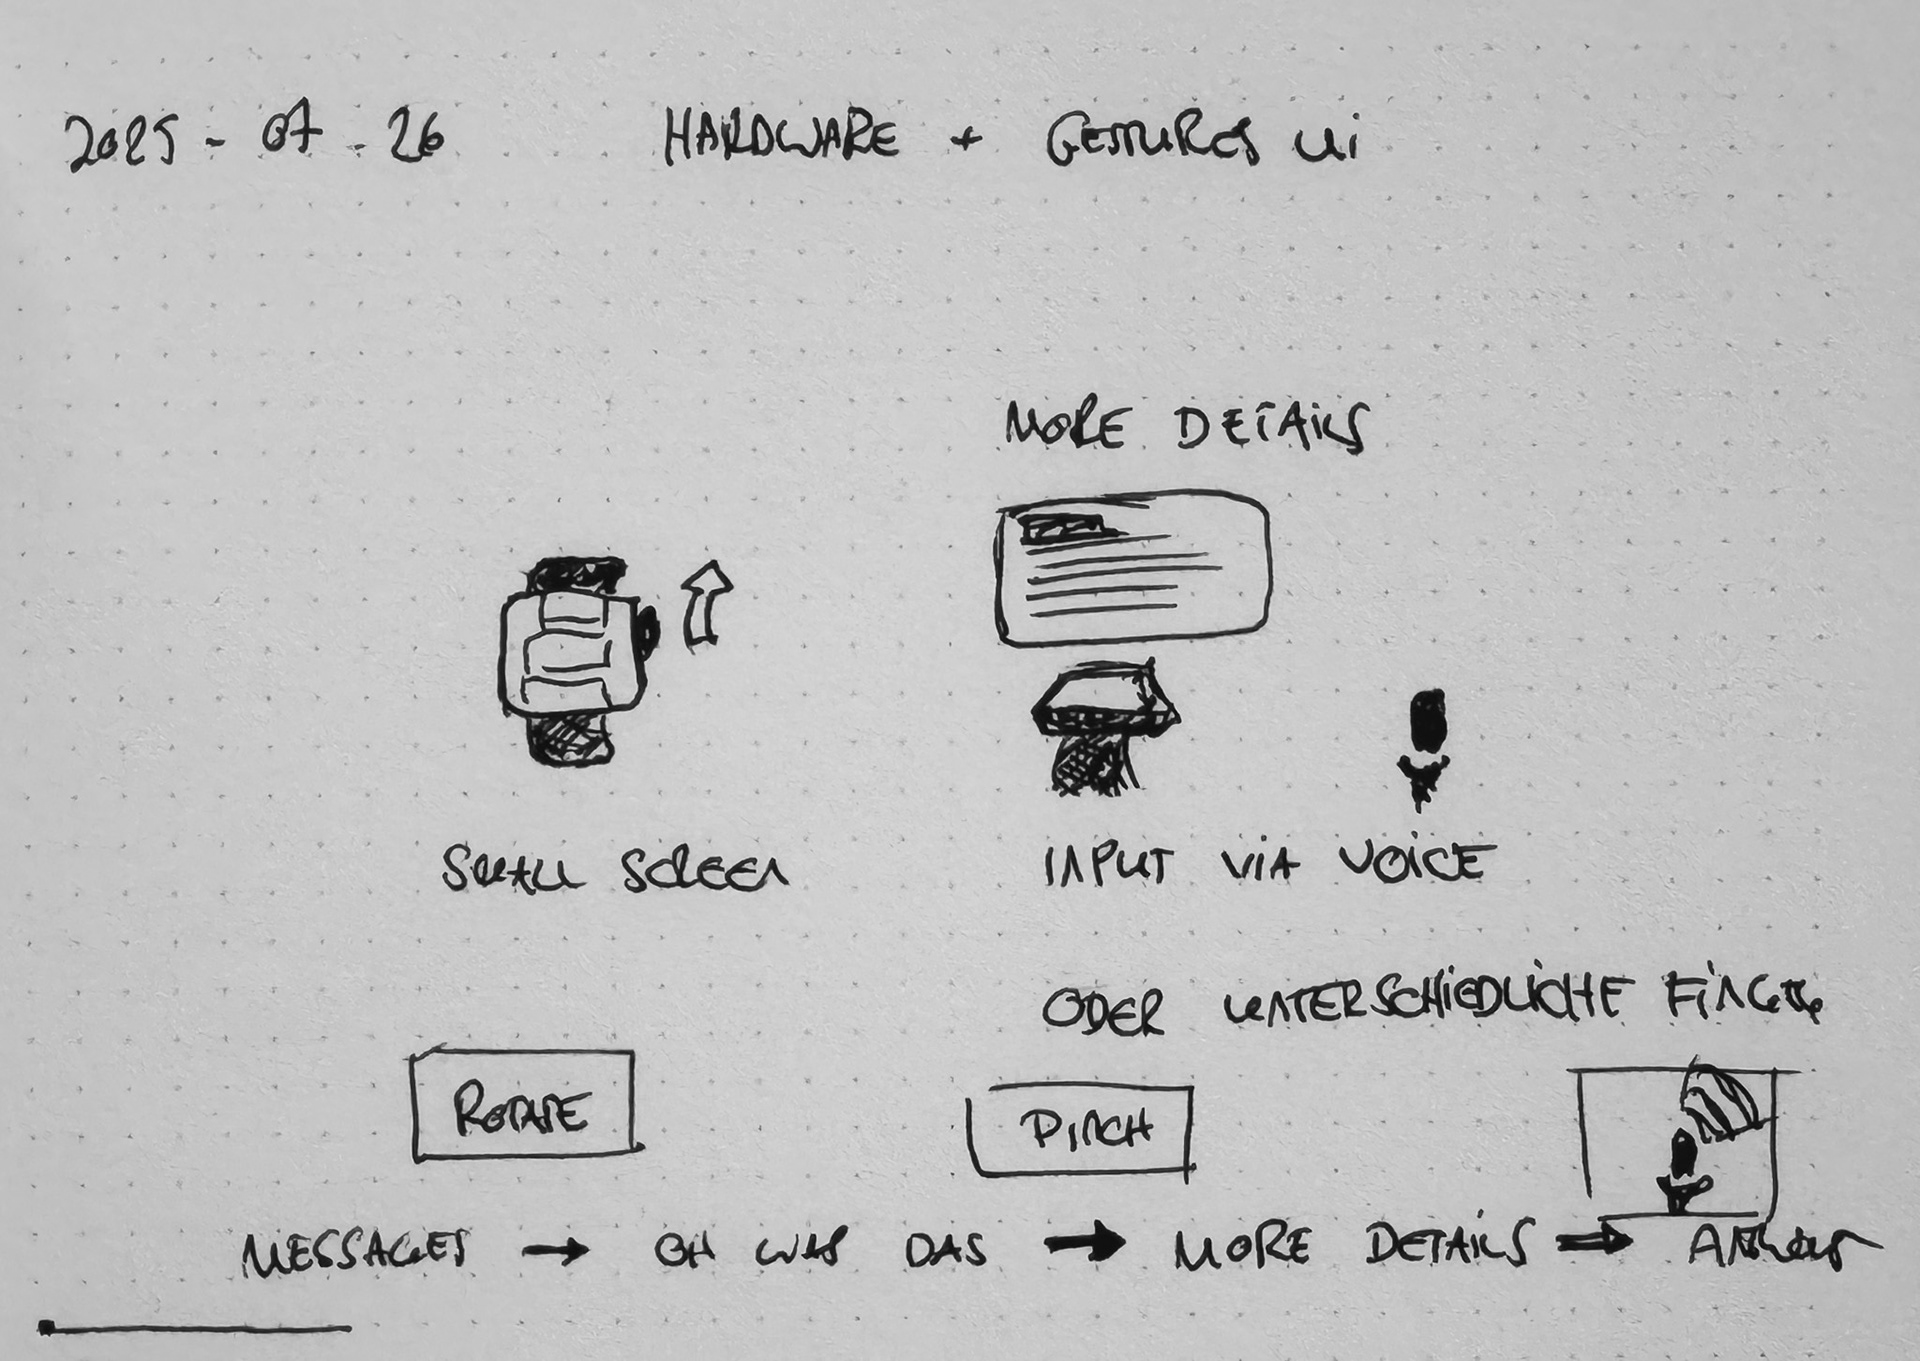 2025-07-26 HARDWARE + GESTURES Ui
MORE DETAILS
SMALL SCREEN
INPUT VIA VOICE
ODER UNTERSCHIEDLICHE FINGER
ROTATE
PINCH
MESSAGES → OH WAS DAS → MORE DETAILS ⇒ ANTWORT